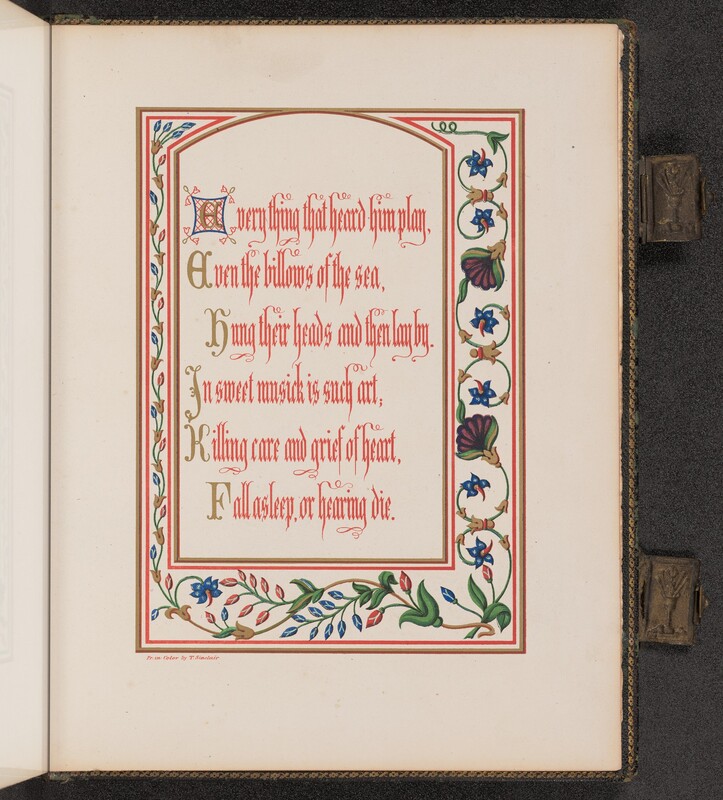 Every thing that heard him play,
Even the billows of the sea,
Hung their heads and then lay by.
In sweet musick is such art;
Killing care and grief of heart,
Fall asleep, or hearing die.
Pr. in Color by T. Sinclair.